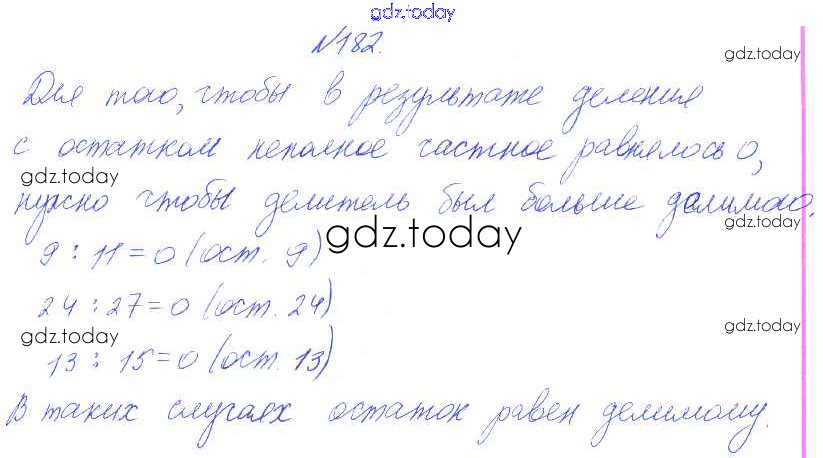 gdz.today
№182.
gdz.today
Для того, чтобы в результате деления
с остатком неполное частное равнялось 0,
gdz.today
нужно чтобы делитель был больше делимого.
gdz.today
9 : 11 = 0 (ост. 9)
gdz.today
24 : 27 = 0 (ост. 24)
gdz.today
gdz.today
13 : 15 = 0 (ост. 13)
В таких случаях остаток равен делимому.